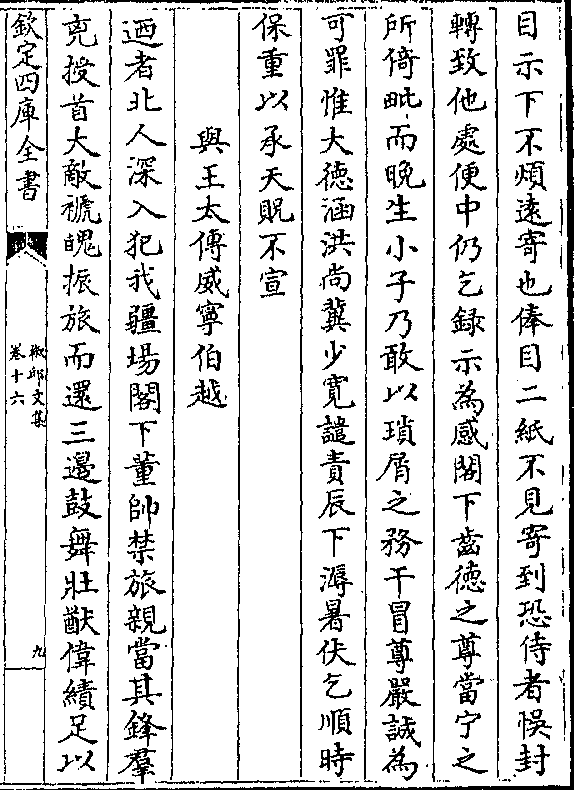 目示下不煩遠寄也俸目二紙不見寄到恐侍者悞封
轉致他處便中仍乞録示為感閣下齒徳之尊當宁之
所倚毗而晚生小子乃敢以瑣屑之務干冒尊嚴誠為
可罪惟大徳涵洪尚冀少寛譴責辰下溽暑伏乞順時
保重以承天貺不宣
與王太傅威寧伯越
迺者北人深入犯我疆場閣下董帥禁旅親當其鋒羣
兇授首大敵褫魄振旅而還三邊鼓舞壯猷偉績足以
欽定四庫全書
椒邱文集
卷十六
九